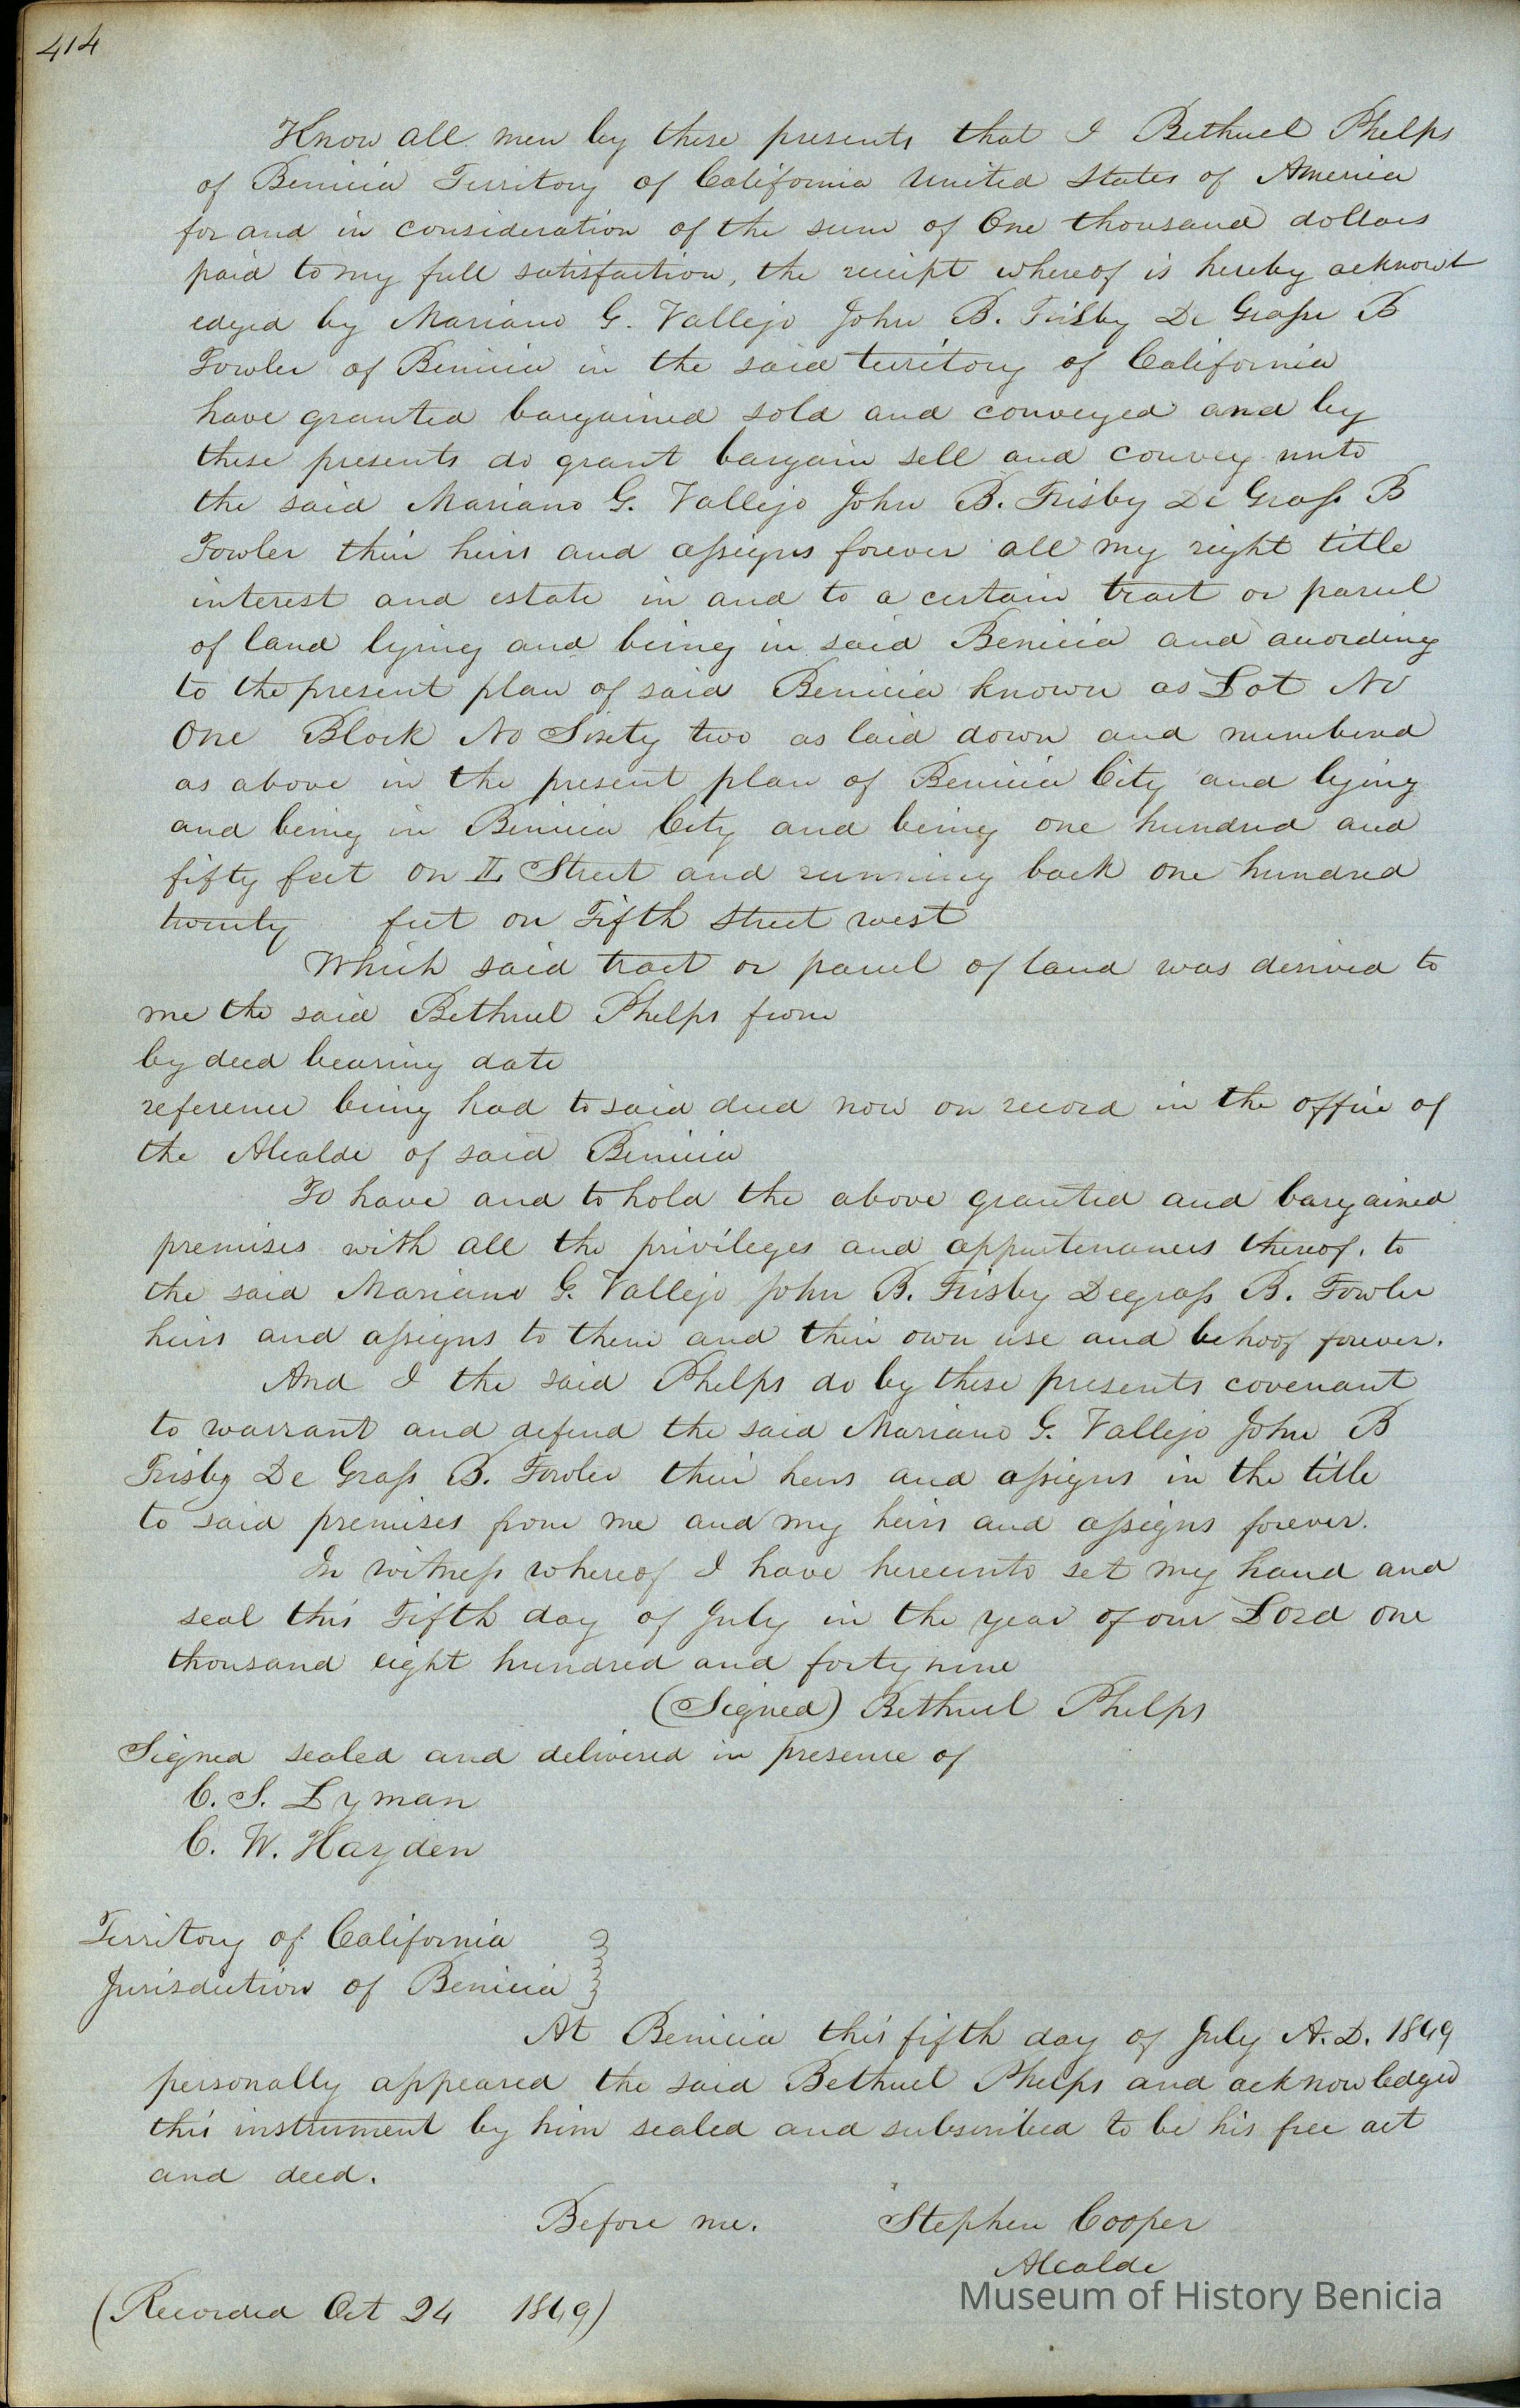 414
Know all men by these presents that I Bethuel Phelps
of Benicia Territory of California United States of America
for and in consideration of the sum of One thousand dollars
paid to my full satisfaction, the receipt whereof is hereby acknowl
edged by Mariano G. Vallejo John B. Frisby De Grasse B
Fowler of Benicia in the said territory of California
have granted bargained sold and conveyed and by
these presents do grant bargain sell and convey unto
the said Mariano G. Vallejo John B. Frisby De Grass B
Fowler their heirs and assigns forever all my right title
interest and estate in and to a certain tract or parcel
of land lying and being in said Benicia and according
to the present plan of said Benicia known as Lot No
One Block No Sixty two as laid down and numbered
as above in the present plan of Benicia City and lying
and being in Benicia City and being one hundred and
fifty feet on Street and running back one hundred
twenty feet on Fifth street west
Which said tract or parcel of land was derived to
me the said Bethuel Phelps from
by deed bearing date
reference being had to said deed now on record in the office of
the Alcalde of said Benicia
To have and to hold the above granted and bargained
premises with all the privileges and appurtenances thereof, to
the said Mariano G. Vallejo John B. Frisby Degrass B. Fowler
heirs and assigns to them and their own use and behoof forever.
And I the said Phelps do by these presents covenant
to warrant and defend the said Mariano G. Vallejo John B
Frisby De Grass B. Fowler their heirs and assigns in the title
to said premises from me and my heirs and assigns forever.
In witness whereof I have hereunto set my hand and
seal this Fifth day of July in the year of our Lord one
thousand eight hundred and forty nine
(Signed) Bethuel Phelps
Signed sealed and delivered in presence of
C. S. Lyman
C. W. Hayden
Territory of California
Jurisdiction of Benicia
At Benicia this fifth day of July A.D. 1849
personally appeared the said Bethuel Phelps and acknowledged
this instrument by him sealed and subscribed to be his free act
and deed.
Before me. Stephen Cooper
Alcalde
Museum of History Benicia
(Recorded Oct 24 1849)